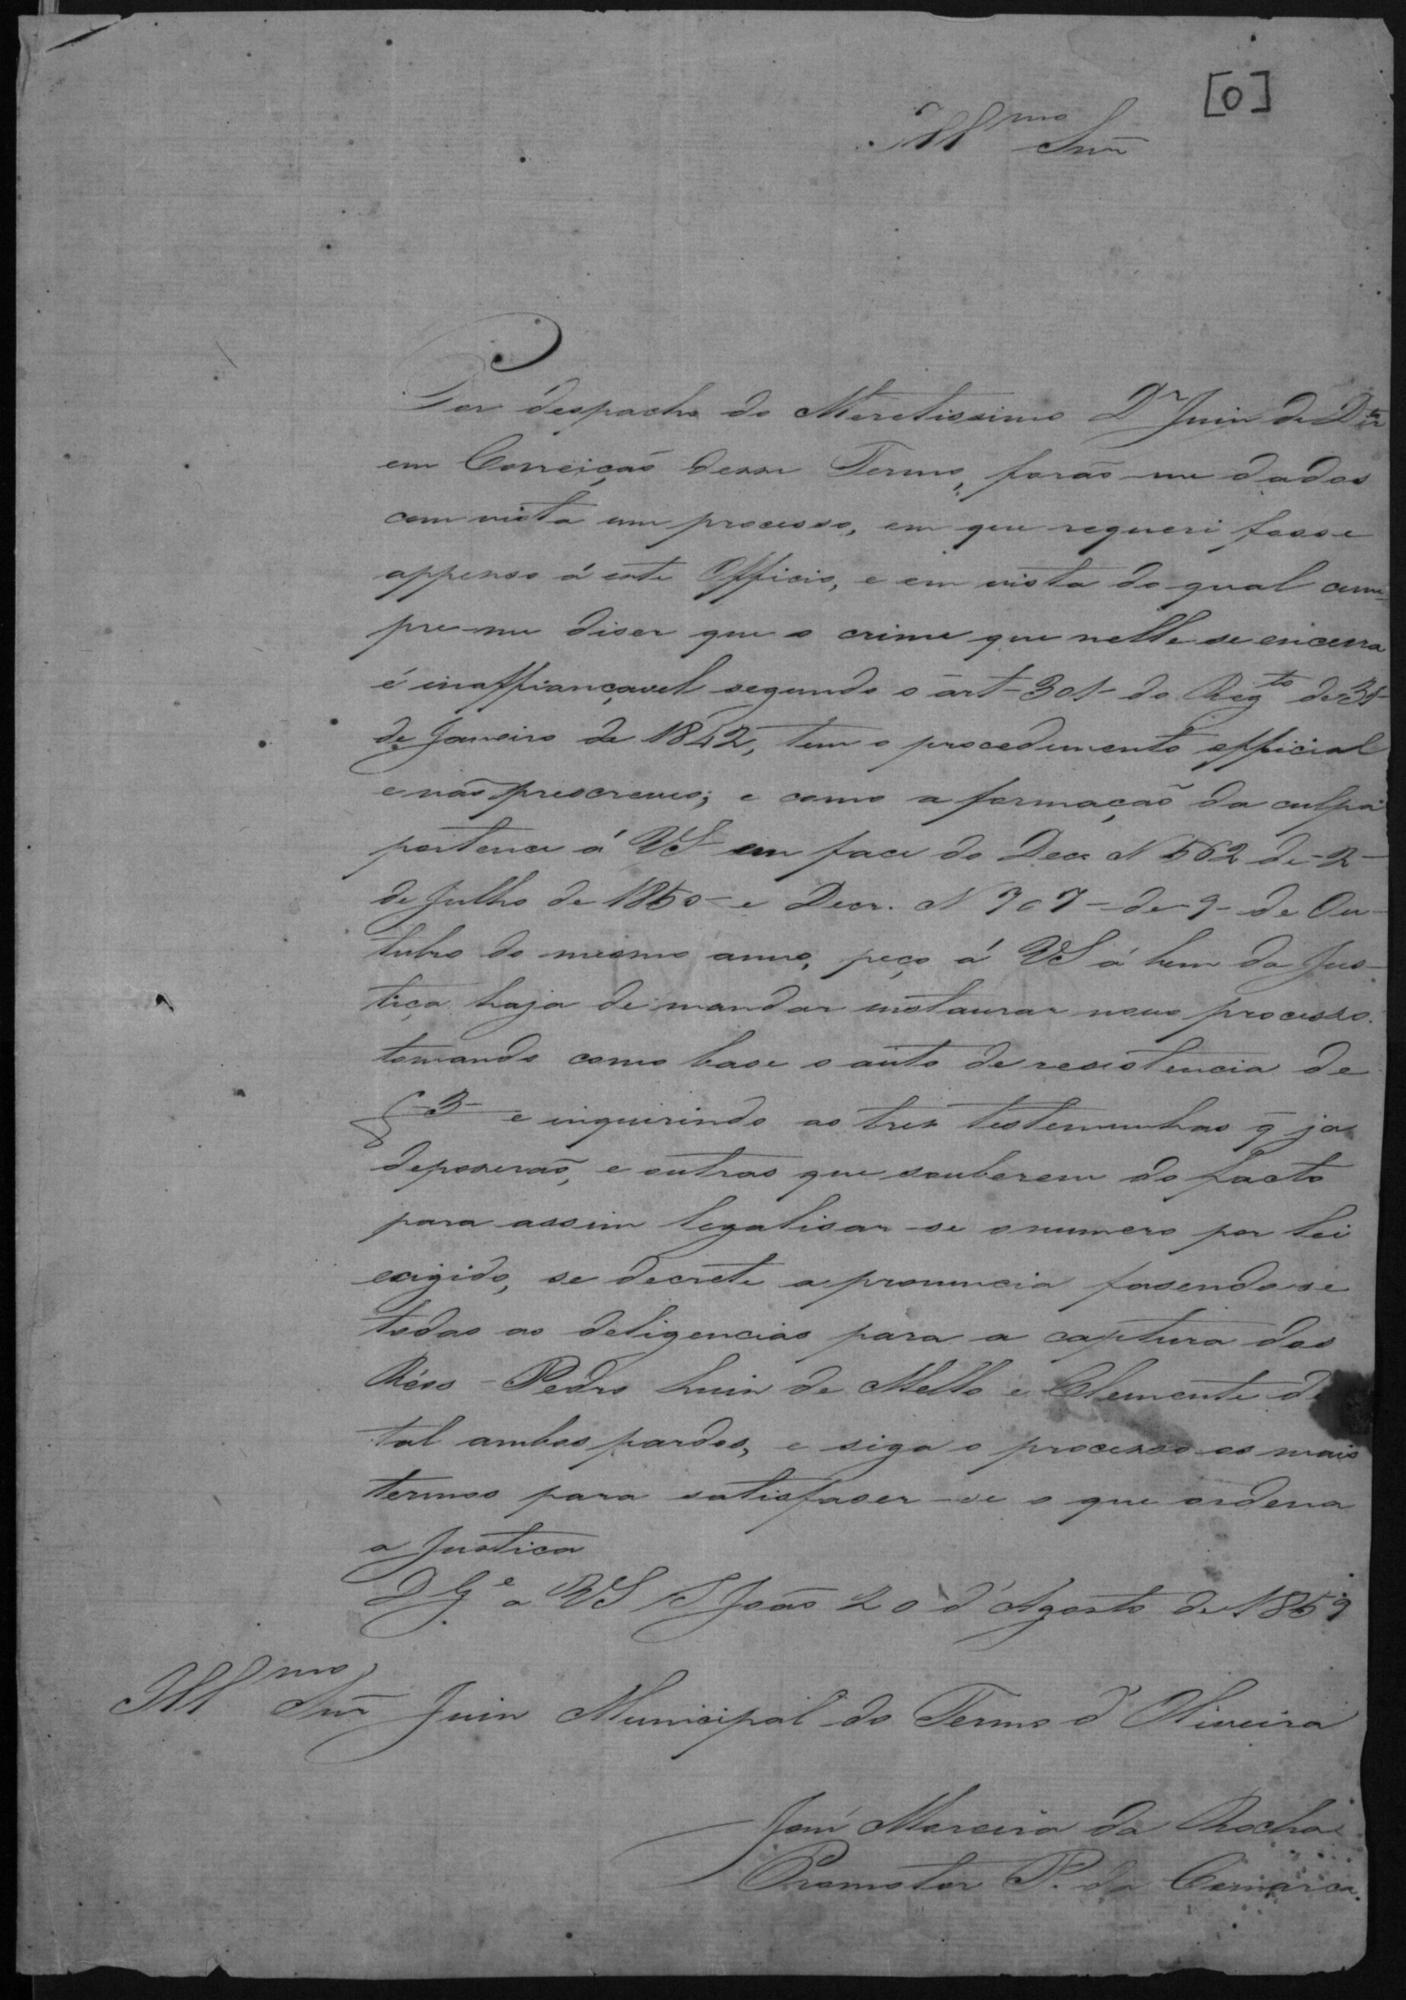 [0]
Ill^mo Snr̃
Por despacho do Meretissimo D^r Juiz de D^to
em Correição desse Termo, forão-me dados
com vista um processo, em que requeri fosse
appenso á este Officio, e em vista do qual cum-
pre-me diser que o crime que nelle se encerra
é inaffiançavel segundo o art-301- do Reg^to de 31-
de Janeiro de 1842, tem o procedimento official
e não prescreveo; e como a formação da culpa
pertence á VS em face do Decr. N 562 de-2-
de Julho de 1850- e Decr. N 707- de-9- de Ou-
tubro do mesmo anno, peço á VS á bem da Jus-
tiça haja de mandar instaurar novo processo
tomando como base o auto de resistencia de
f-3- e inquirindo as tres testemunhas q̃ já
deposerão, e outras que souberem do facto
para assim legalisar-se o numero por lei
exigido, se decrete a pronuncia fasendo-se
todas as deligencias para a captura dos
Réos - Pedro Luiz de Mello e Clemente de
tal ambos pardos, e siga o processo os mais
termos para satisfaser-se o que ordena
a Justiça
D G^e a VS S João 20 d'Agosto de 1859
Ill^mo Snr̃ Juiz Municipal do Termo d'Oliveira
José Moreira da Rocha
Promotor P. da Comarca.